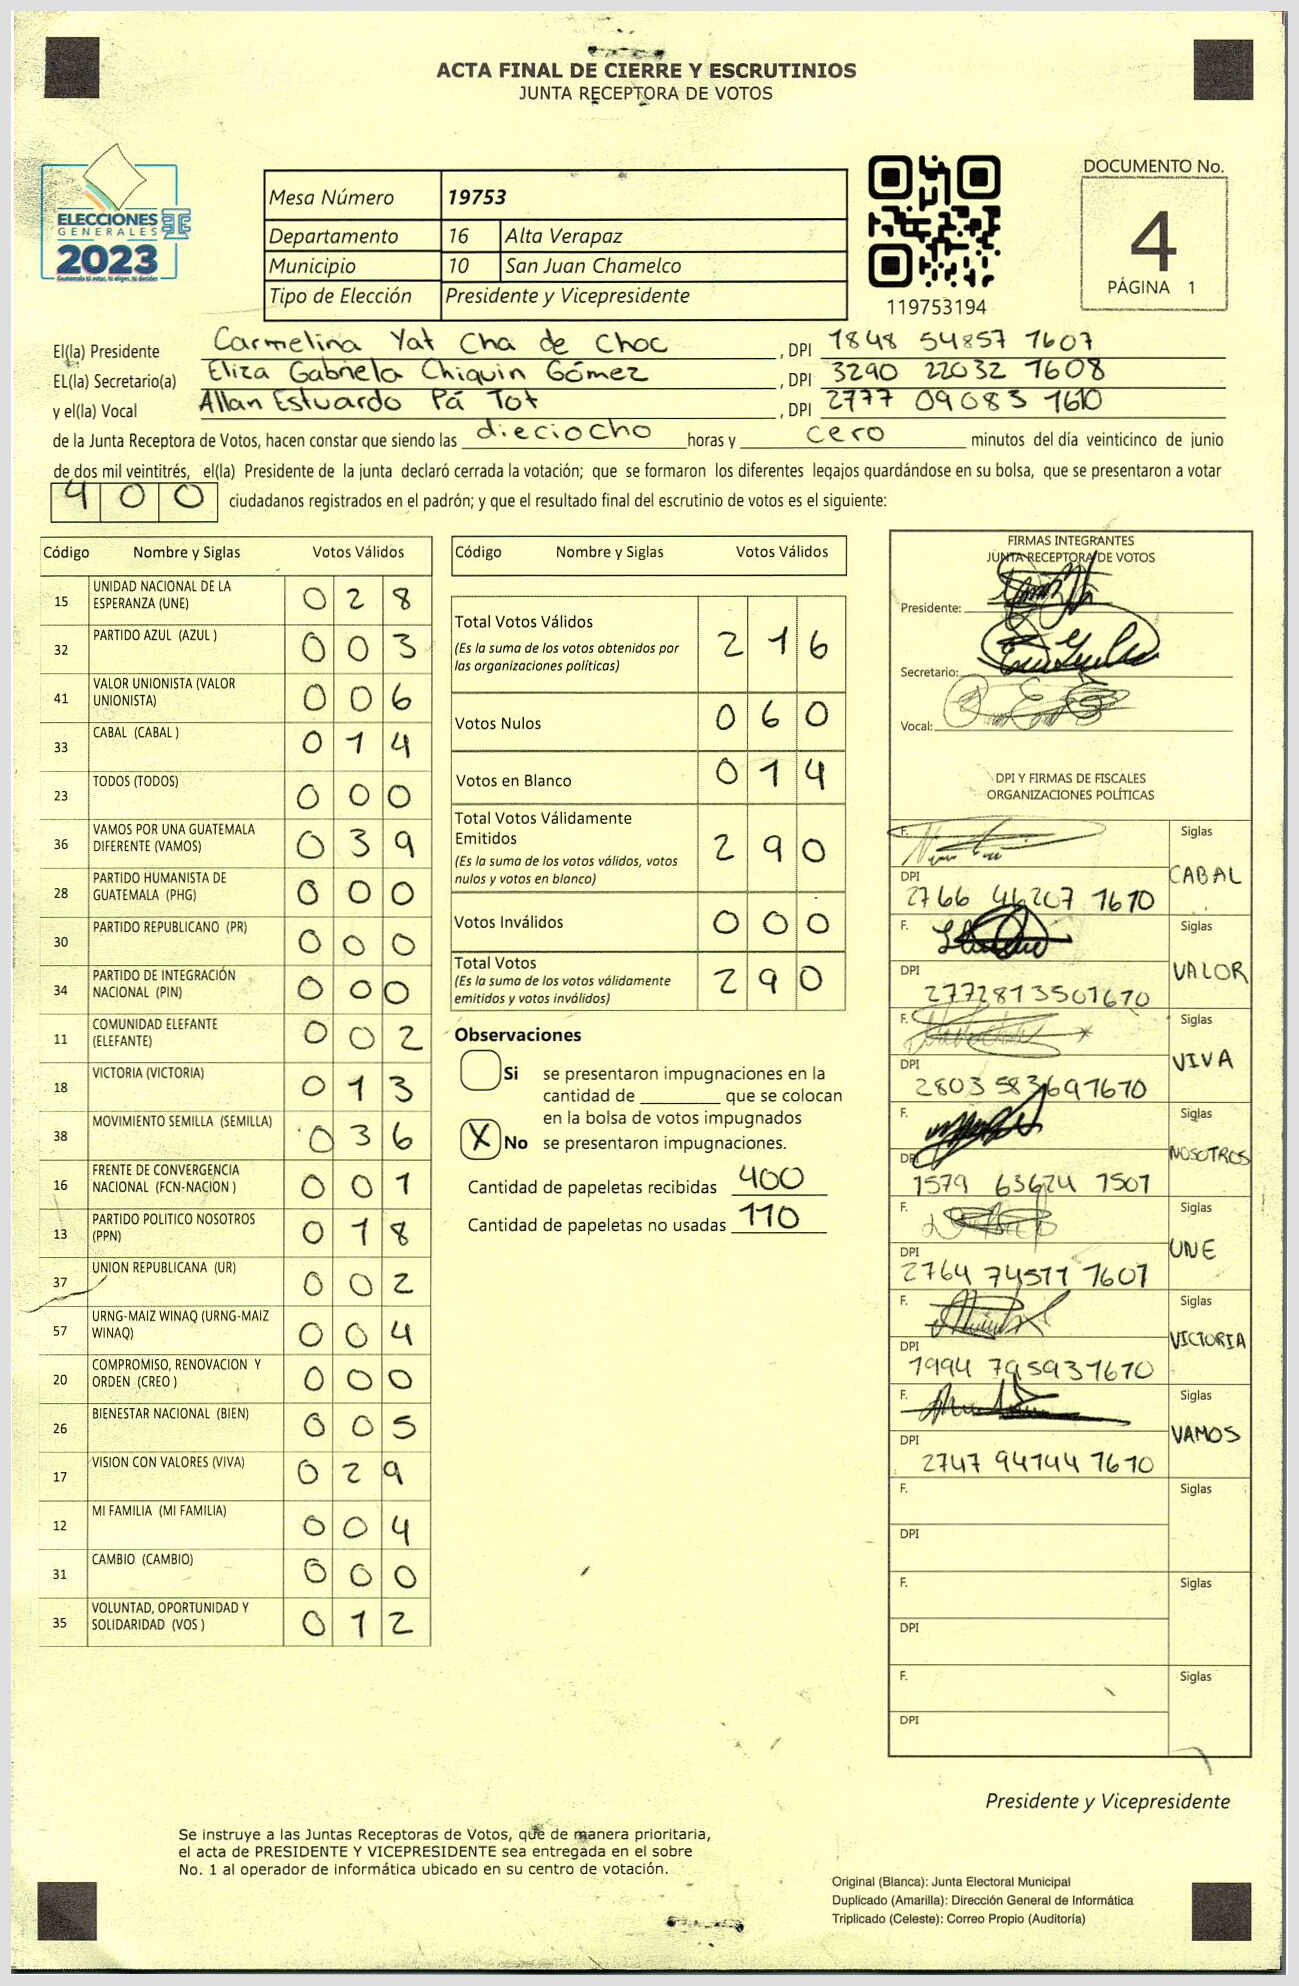 ACTA FINAL DE CIERRE Y ESCRUTINIOS
JUNTA RECEPTORA DE VOTOS
ELECCIONES
GENERALES
2023
Mesa Número 19753
Departamento 16 Alta Verapaz
Municipio 10 San Juan Chamelco
Tipo de Elección Presidente y Vicepresidente
119753194
DOCUMENTO No.
4
PÁGINA 1
El(la) Presidente Carmelina Yat Cha de Choc , DPI 1848 54857 1607
EL(la) Secretario(a) Eliza Gabriela Chiquin Gómez , DPI 3290 22032 1608
y el(la) Vocal Allan Estuardo Pá Tot , DPI 2777 09083 1610
de la Junta Receptora de Votos, hacen constar que siendo las dieciocho horas y cero minutos del día veinticinco de junio
de dos mil veintitrés, el(la) Presidente de la junta declaró cerrada la votación; que se formaron los diferentes legajos guardándose en su bolsa, que se presentaron a votar
400 ciudadanos registrados en el padrón; y que el resultado final del escrutinio de votos es el siguiente:
Código Nombre y Siglas Votos Válidos
15 UNIDAD NACIONAL DE LA ESPERANZA (UNE) 028
32 PARTIDO AZUL (AZUL ) 003
41 VALOR UNIONISTA (VALOR UNIONISTA) 006
33 CABAL (CABAL ) 014
23 TODOS (TODOS) 000
36 VAMOS POR UNA GUATEMALA DIFERENTE (VAMOS) 039
28 PARTIDO HUMANISTA DE GUATEMALA (PHG) 000
30 PARTIDO REPUBLICANO (PR) 000
34 PARTIDO DE INTEGRACIÓN NACIONAL (PIN) 000
11 COMUNIDAD ELEFANTE (ELEFANTE) 002
18 VICTORIA (VICTORIA) 013
38 MOVIMIENTO SEMILLA (SEMILLA) 036
16 FRENTE DE CONVERGENCIA NACIONAL (FCN-NACION ) 001
13 PARTIDO POLITICO NOSOTROS (PPN) 018
37 UNION REPUBLICANA (UR) 002
57 URNG-MAIZ WINAQ (URNG-MAIZ WINAQ) 004
20 COMPROMISO, RENOVACION Y ORDEN (CREO ) 000
26 BIENESTAR NACIONAL (BIEN) 005
17 VISION CON VALORES (VIVA) 029
12 MI FAMILIA (MI FAMILIA) 004
31 CAMBIO (CAMBIO) 000
35 VOLUNTAD, OPORTUNIDAD Y SOLIDARIDAD (VOS ) 012
Código Nombre y Siglas Votos Válidos
Total Votos Válidos 216
(Es la suma de los votos obtenidos por
las organizaciones políticas)
Votos Nulos 060
Votos en Blanco 014
Total Votos Válidamente
Emitidos 290
(Es la suma de los votos válidos, votos
nulos y votos en blanco)
Votos Inválidos 000
Total Votos 290
(Es la suma de los votos válidamente
emitidos y votos inválidos)
Observaciones
Si se presentaron impugnaciones en la
cantidad de ________ que se colocan
en la bolsa de votos impugnados
X No se presentaron impugnaciones.
Cantidad de papeletas recibidas 400
Cantidad de papeletas no usadas 110
FIRMAS INTEGRANTES
JUNTA RECEPTORA DE VOTOS
Presidente:
Secretario:
Vocal:
DPI Y FIRMAS DE FISCALES
ORGANIZACIONES POLÍTICAS
F. Siglas
DPI 2766 46207 1610 CABAL
F. Siglas
DPI 2772813501610 VALOR
F. Siglas
DPI 2803583691610 VIVA
F. Siglas
DPI 1579 63624 1501 NOSOTROS
F. Siglas
DPI 2764 74511 1601 UNE
F. Siglas
DPI 1994 795931610 VICTORIA
F. Siglas
DPI 2747 94144 1610 VAMOS
F. Siglas
DPI
F. Siglas
DPI
F. Siglas
DPI
Presidente y Vicepresidente
Se instruye a las Juntas Receptoras de Votos, que de manera prioritaria,
el acta de PRESIDENTE Y VICEPRESIDENTE sea entregada en el sobre
No. 1 al operador de informática ubicado en su centro de votación.
Original (Blanca): Junta Electoral Municipal
Duplicado (Amarilla): Dirección General de Informática
Triplicado (Celeste): Correo Propio (Auditoría)